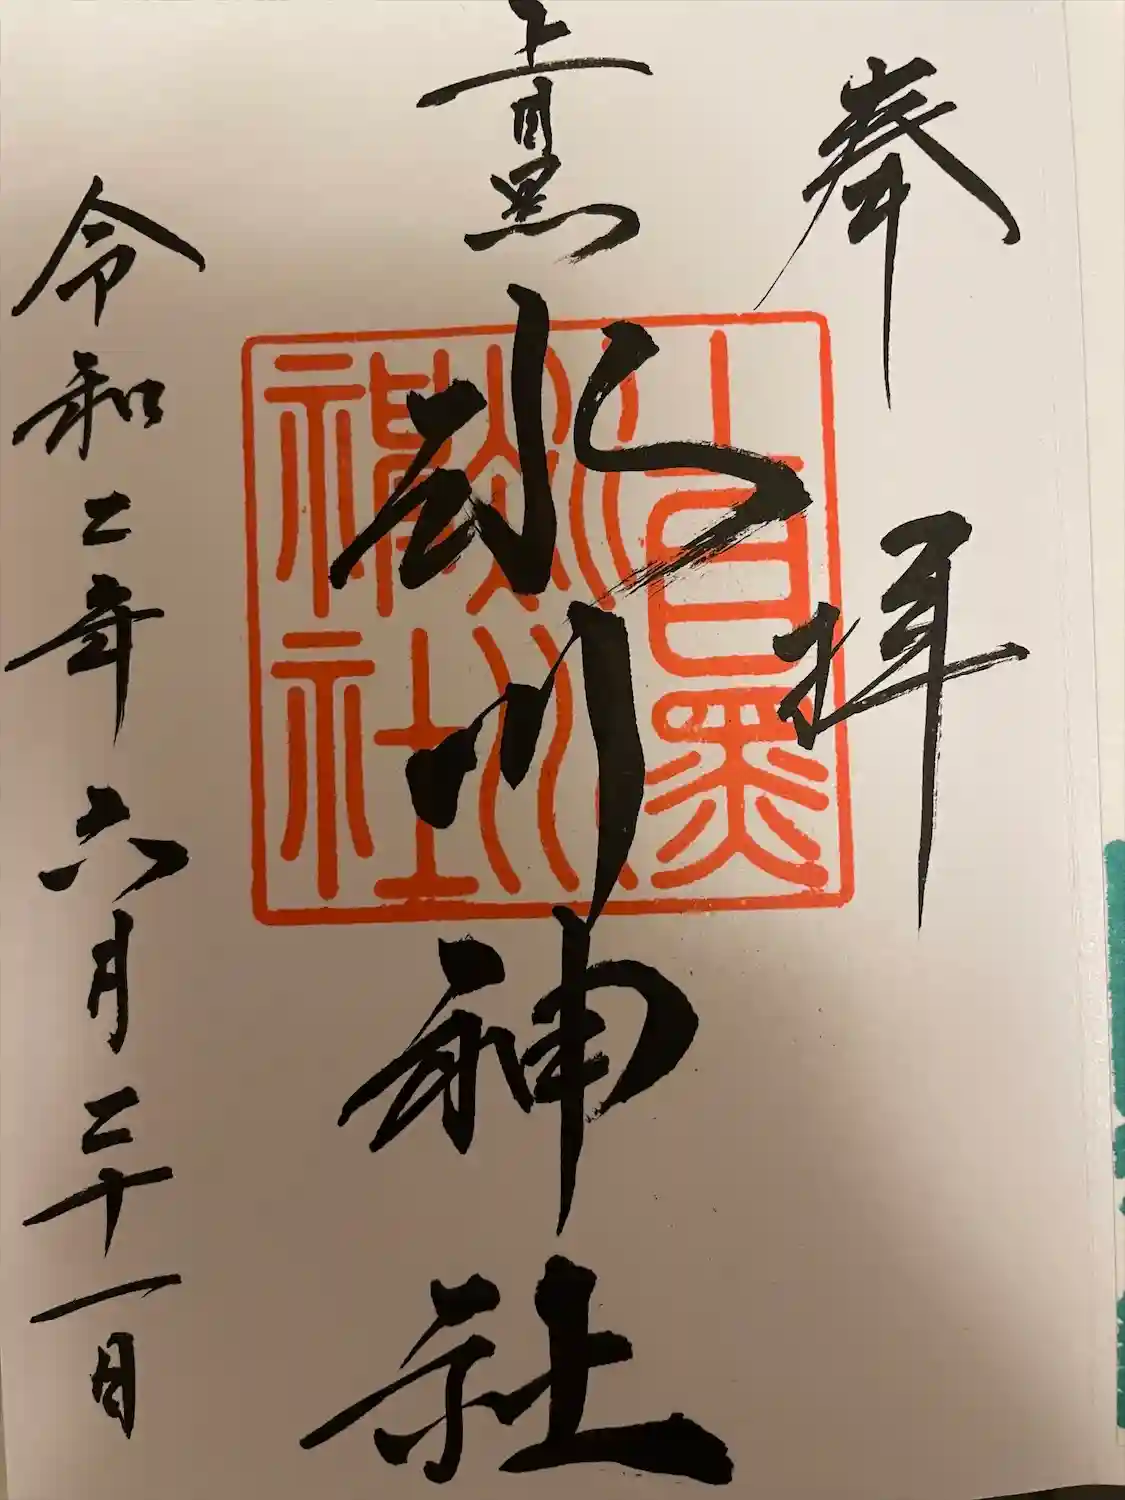 奉拝
上目黒
氷川神社
令和二年六月二十一日
上目黒
氷川
神社